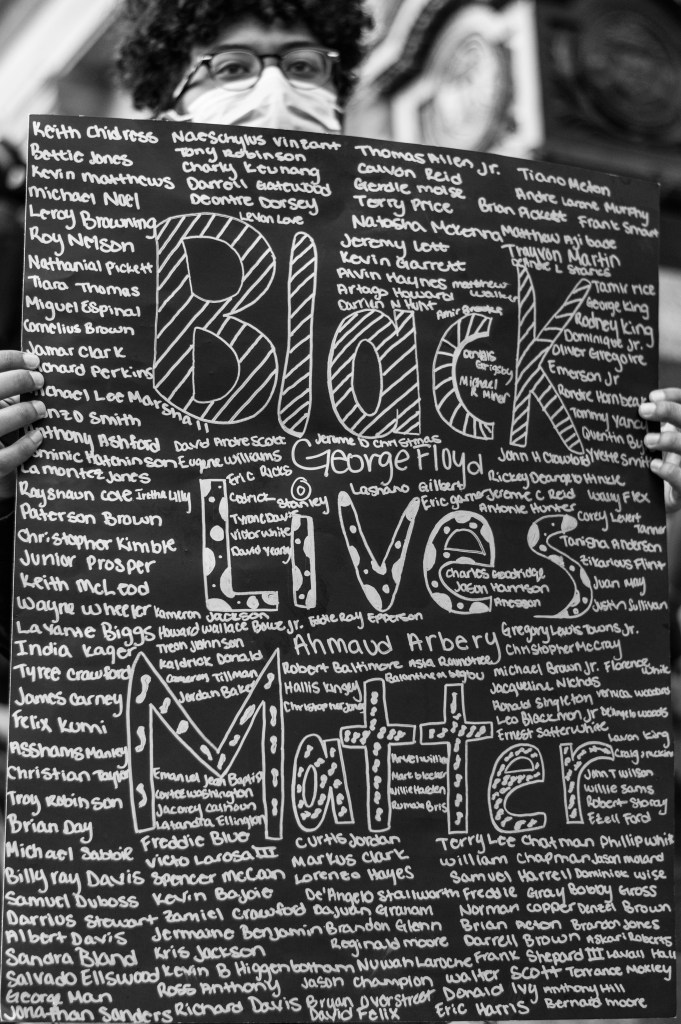 Keith Chidress
Bettie Jones
Kevin matthews
michael Noel
Leroy Browning
Roy Nelson
Nathanial Pickett
Tiara Thomas
Miguel Espinal
Cornelius Brown
Jamar Clark
Perkins
Lee Marshall
Smith
Ashford
Hutchinson
Lamontez Jones
Rayshaun Cole
Paterson Brown
Christopher Kimble
Junior Prosper
Keith McLeod
Wayne Wheeler
Lavante Biggs
India Kager
Tyree Crawford
James Carney
Felix Kumi
Asshams Manley
Christian Taylor
Troy Robinson
Brian Day
Michael Sabbie
Billy ray Davis
Samuel Duboss
Darrius Stewart
Albert Davis
Sandra Bland
Salvado Ellswood
George Man
Jonathan Sanders
Naeschylus Vinzant
Tony Robinson
Charly Keunang
Darrell Gatewood
Deontre Dorsey
Levon Love
Thomas Allen Jr.
Calvon Reid
Gerdie moise
Terry Price
Natasha McKenna
Jeremy Lett
Kevin Garrett
Alvin Haynes
Artago Howard
Carlton N Hunt
Tiano Meton
Andre Larone Murphy
Brian Pickett
Frank Smart
Matthew Ajibade
Trayvon Martin
L Stanes
matthew
walker
Amir Brooks
Tamir rice
George King
Rodney King
Dominique Jr.
Oliver Gregoire
Emerson Jr
Tommy Yancy
Quentin By
Yvette Smith
Black
Michael
David Andre Scott
Jerame D Christmas
Eugene Williams
George Floyd
John H Crawford
Eric Ricks
Lashano Gilbert
Rickey Deangelo Hinkle
Cedrick
Stanley
Eric garner
Jereme C Reid
Wavy Flex
Antonie Hunter
Corey Levert
Irethe Lilly
Tyrone Davis
Victor White
David Yearby
Tanisha Anderson
Zikarious Flint
Juan May
Justin Sullivan
Lives
Charles Goodridge
Jason Harrison
Kameron Jackson
Howard Wallace Bowe Jr.
Eddie Ray Epperson
Treon Johnson
Ahmaud Arbery
Gregory Lewis Towns Jr.
Christopher McCray
Keldrick Donald
Cameron Tillman
Jordan Baker
Robert Baltimore
Asia Roundtree
Michael Brown Jr.
Florence White
Hallis Kingsy
Jacqueline Nichols
Ronald Singleton
Vernica woodard
Leo Blackmon Jr
Dangelo woods
Ernest Satterwhite
Matter
Emanuel Jean Baptis
Cortez Washington
Jacorey Calhoun
Latandra Ellington
Mark
Willie Harden
Levon King
John T Wilson
Willie Sams
Robert Storay
Ezell Ford
Freddie Blue
Victo Larosa III
Spencer McCain
Kevin Bajoie
Zamiel Crawford
Jermaine Benjamin
Kris Jackson
Kevin B Higgenbotham
Ross Anthony
Richard Davis
Curtis Jordan
Markus Clark
Lorenzo Hayes
De'Angelo Stallworth
Dajuan Graham
Brandon Glenn
Reginald moore
Nuwah Laroche
Jason Champion
Bryan Overstreet
David Felix
Terry Lee Chatman
Phillip white
William Chapman
Jason moland
Samuel Harrell
Dominick Wise
Freddie Gray
Bobby Gross
Norman copper
Denzel Brown
Brian Acton
Brandon Jones
Darrell Brown
Askari Roberts
Frank Shepard III
Lavall Hall
Walter Scott
Terrance Moxley
Donald Ivy
Anthony Hill
Eric Harris
Bernard moore